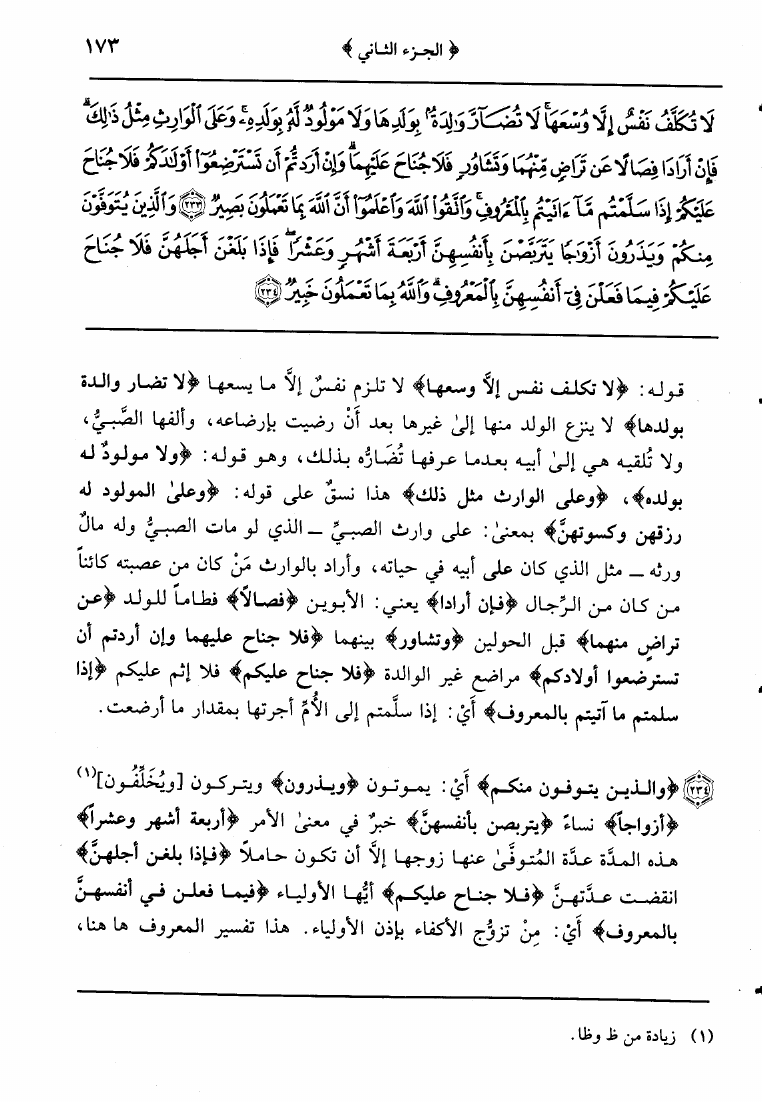 ﴿ الجزء الثاني ﴾ ١٧٣
لَا تُكَلَّفُ نَفْسٌ إِلَّا وُسْعَهَا لَا تُضَارَّ وَٰلِدَةٌۢ بِوَلَدِهَا وَلَا مَوْلُودٌ لَّهُۥ بِوَلَدِهِۦ وَعَلَى ٱلْوَارِثِ مِثْلُ ذَٰلِكَ
فَإِنْ أَرَادَا فِصَالًا عَن تَرَاضٍ مِّنْهُمَا وَتَشَاوُرٍ فَلَا جُنَاحَ عَلَيْهِمَا وَإِنْ أَرَدتُّمْ أَن تَسْتَرْضِعُوٓا۟ أَوْلَٰدَكُمْ فَلَا جُنَاحَ
عَلَيْكُمْ إِذَا سَلَّمْتُم مَّآ ءَاتَيْتُم بِٱلْمَعْرُوفِ وَٱتَّقُوا۟ ٱللَّهَ وَٱعْلَمُوٓا۟ أَنَّ ٱللَّهَ بِمَا تَعْمَلُونَ بَصِيرٌ ٢٣٣ وَٱلَّذِينَ يُتَوَفَّوْنَ
مِنكُمْ وَيَذَرُونَ أَزْوَٰجًا يَتَرَبَّصْنَ بِأَنفُسِهِنَّ أَرْبَعَةَ أَشْهُرٍ وَعَشْرًا فَإِذَا بَلَغْنَ أَجَلَهُنَّ فَلَا جُنَاحَ
عَلَيْكُمْ فِيمَا فَعَلْنَ فِىٓ أَنفُسِهِنَّ بِٱلْمَعْرُوفِ وَٱللَّهُ بِمَا تَعْمَلُونَ خَبِيرٌ ٢٣٤
قوله: ﴿لا تكلف نفس إلَّا وسعها﴾ لا تلزم نفسٌ إلَّا ما يسعها ﴿لا تضار والدة
بولدها﴾ لا ينزع الولد منها إلىٰ غيرها بعد أَنْ رضيت بإرضاعه، وألفها الصَّبيُّ،
ولا تُلقيه هي إلىٰ أبيه بعدما عرفها تُضَارُّه بذلك، وهو قوله: ﴿ولا مولودٌ له
بولده﴾، ﴿وعلى الوارث مثل ذلك﴾ هذا نسقٌ على قوله: ﴿وعلىٰ المولود له
رزقهن وكسوتهنَّ﴾ بمعنىٰ: على وارث الصبيِّ ــ الذي لو مات الصبيُّ وله مالٌ
ورثه ــ مثل الذي كان على أبيه في حياته، وأراد بالوارث مَنْ كان من عصبته كائناً
من كان من الرِّجال ﴿فإن أرادا﴾ يعني: الأبوين ﴿فصالاً﴾ فطاماً للولد ﴿عن
تراضٍ منهما﴾ قبل الحولين ﴿وتشاور﴾ بينهما ﴿فلا جناح عليهما وإن أردتم أن
تسترضعوا أولادكم﴾ مراضع غير الوالدة ﴿فلا جناح عليكم﴾ فلا إثم عليكم ﴿إذا
سلمتم ما آتيتم بالمعروف﴾ أَيْ: إذا سلَّمتم إلى الأُمِّ أجرتها بمقدار ما أرضعت.
٢٣٤ ﴿والذين يتوفون منكم﴾ أَيْ: يموتون ﴿ويذرون﴾ ويتركون [ويُخَلِّفُون](١)
﴿أزواجاً﴾ نساءً ﴿يتربصن بأنفسهنَّ﴾ خبرٌ في معنىٰ الأمر ﴿أربعة أشهر وعشراً﴾
هذه المدَّة عدَّة المُتوفَّىٰ عنها زوجها إلَّا أن تكون حاملاً ﴿فإذا بلغن أجلهنَّ﴾
انقضت عدَّتهنَّ ﴿فلا جناح عليكم﴾ أيُّها الأولياء ﴿فيما فعلن في أنفسهنَّ
بالمعروف﴾ أَيْ: مِنْ تزوُّج الأكفاء بإذن الأولياء. هذا تفسير المعروف ها هنا،
(١) زيادة من ظ وظا.